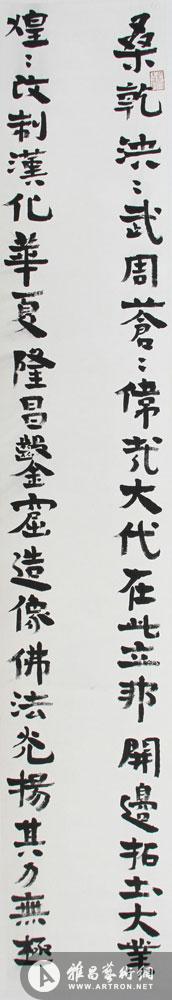 桑乾泱〻武周蒼〻偉哉大代在此立邦開邊拓土大業
煌〻改制漢化華夏隆昌鑿窟造像佛法光揚其力無極
雅昌藝術網
WWW.ARTRON.NET